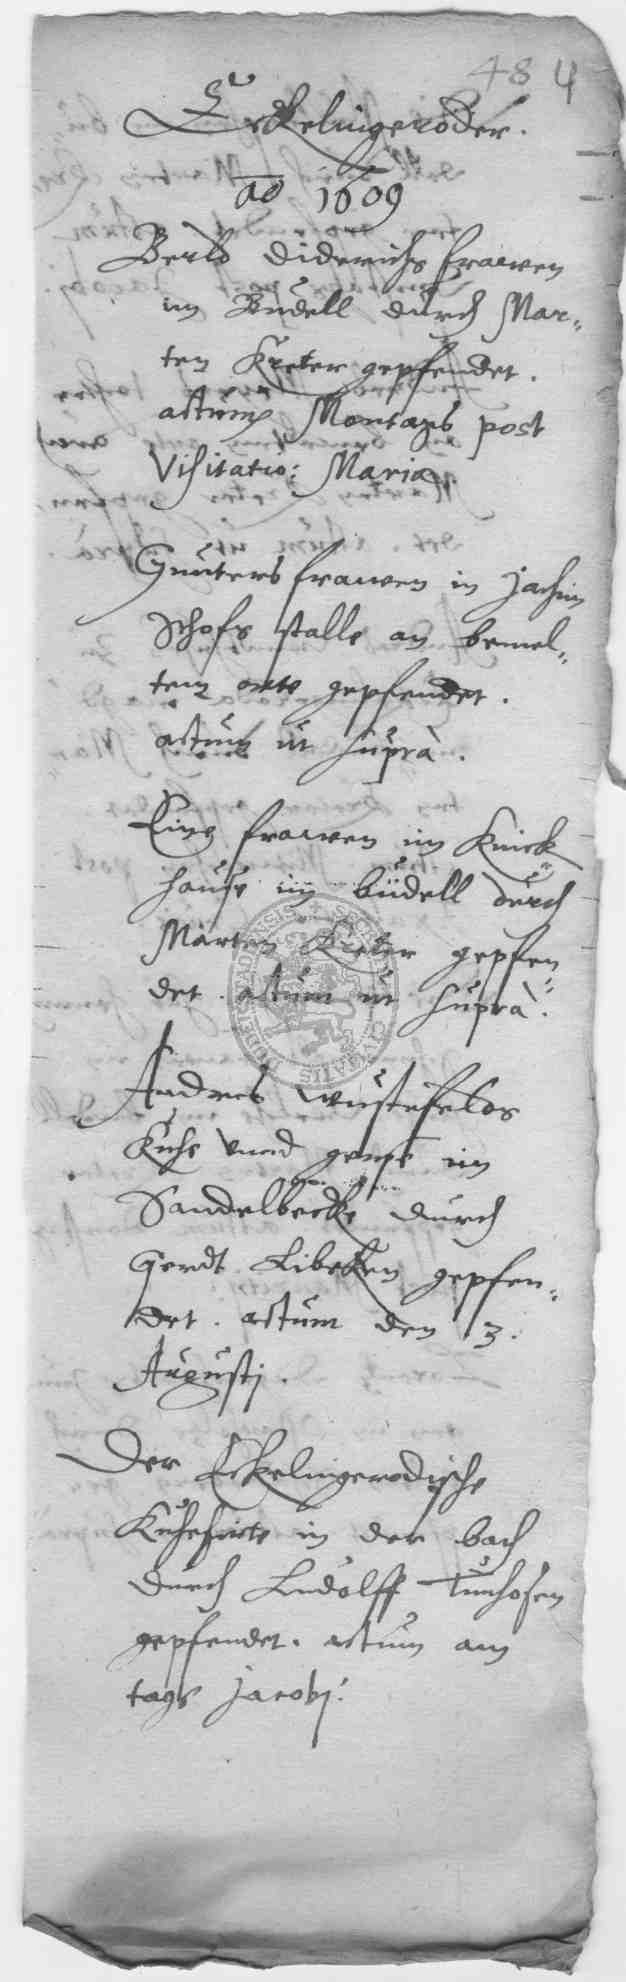 484
Eckelingeroder.
ao 1609
Berld Diderichs frawen
im Budell durch Mar„
ten Kreter gepfendet.
actum Montags post
Visitatio: Mariæ.
Gunters frawen in Jachim
Schofs stalle an bemel„
tem orte gepfendet.
actum ut suprà.
Eine frawen im Knick
hause im büdell durch
Marten Kreter gepfen„
det. actum ut suprà.
Andres Wustefelds
Kuhe vnd gense im
Sandelbecke durch
Gerdt Libeken gepfen„
det. actum den 3.
Augusti.
Der Eckelingerodische
Kuhehirte in der bach
durch Ludolff Tunhosen
gepfendet. actum am
tage Jacobi.